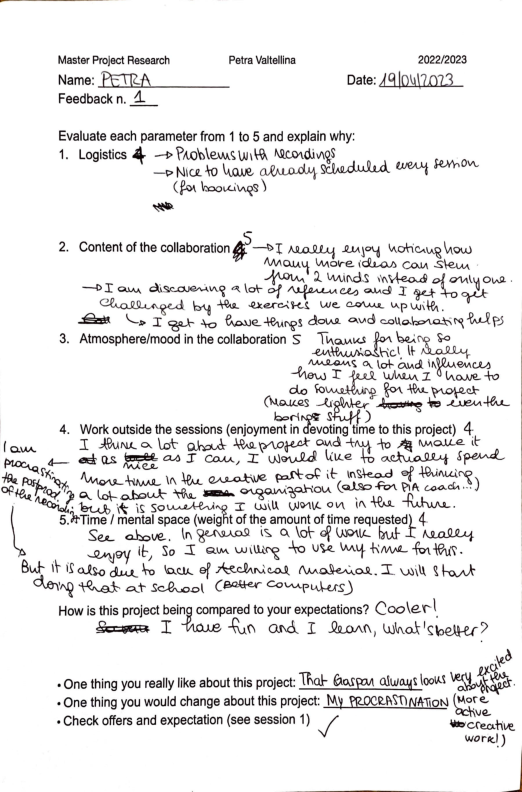 Master Project Research Petra Valtellina 2022/2023
Name: PETRA Date: 19/04/2023
Feedback n. 1
Evaluate each parameter from 1 to 5 and explain why:
1. Logistics 4 → Problems with recordings
→ Nice to have already scheduled every session
(for bookings)
2. Content of the collaboration 5 → I really enjoy noticing how
many more ideas can stem
from 2 minds instead of only one.
→ I am discovering a lot of references and I get to get
challenged by the exercises we come up with.
↳ I get to have things done and collaborating helps
3. Atmosphere/mood in the collaboration 5 Thanks for being so
enthusiastic! It really
means a lot and influences
how I feel when I have to
do something for the project
(Makes lighter to even the
borings stuff)
4. Work outside the sessions (enjoyment in devoting time to this project) 4
I think a lot about the project and try to make it
as nice as I can, I would like to actually spend
more time in the creative part of it instead of thinking
a lot about the organization (also for PIA coach...)
but it is something I will work on in the future.
I am
procrastinating
the postprod
of the recordin
5. Time / mental space (weight of the amount of time requested) 4
See above. In general is a lot of work but I really
enjoy it, so I am willing to use my time for this.
But it is also due to lack of technical material. I will start
doing that at school (Better computers)
How is this project being compared to your expectations? Cooler!
I have fun and I learn, what's better?
• One thing you really like about this project: That Gaspar always looks very excited
about the
project.
• One thing you would change about this project: My PROCRASTINATION (More
active
creative
work!)
• Check offers and expectation (see session 1) ✓